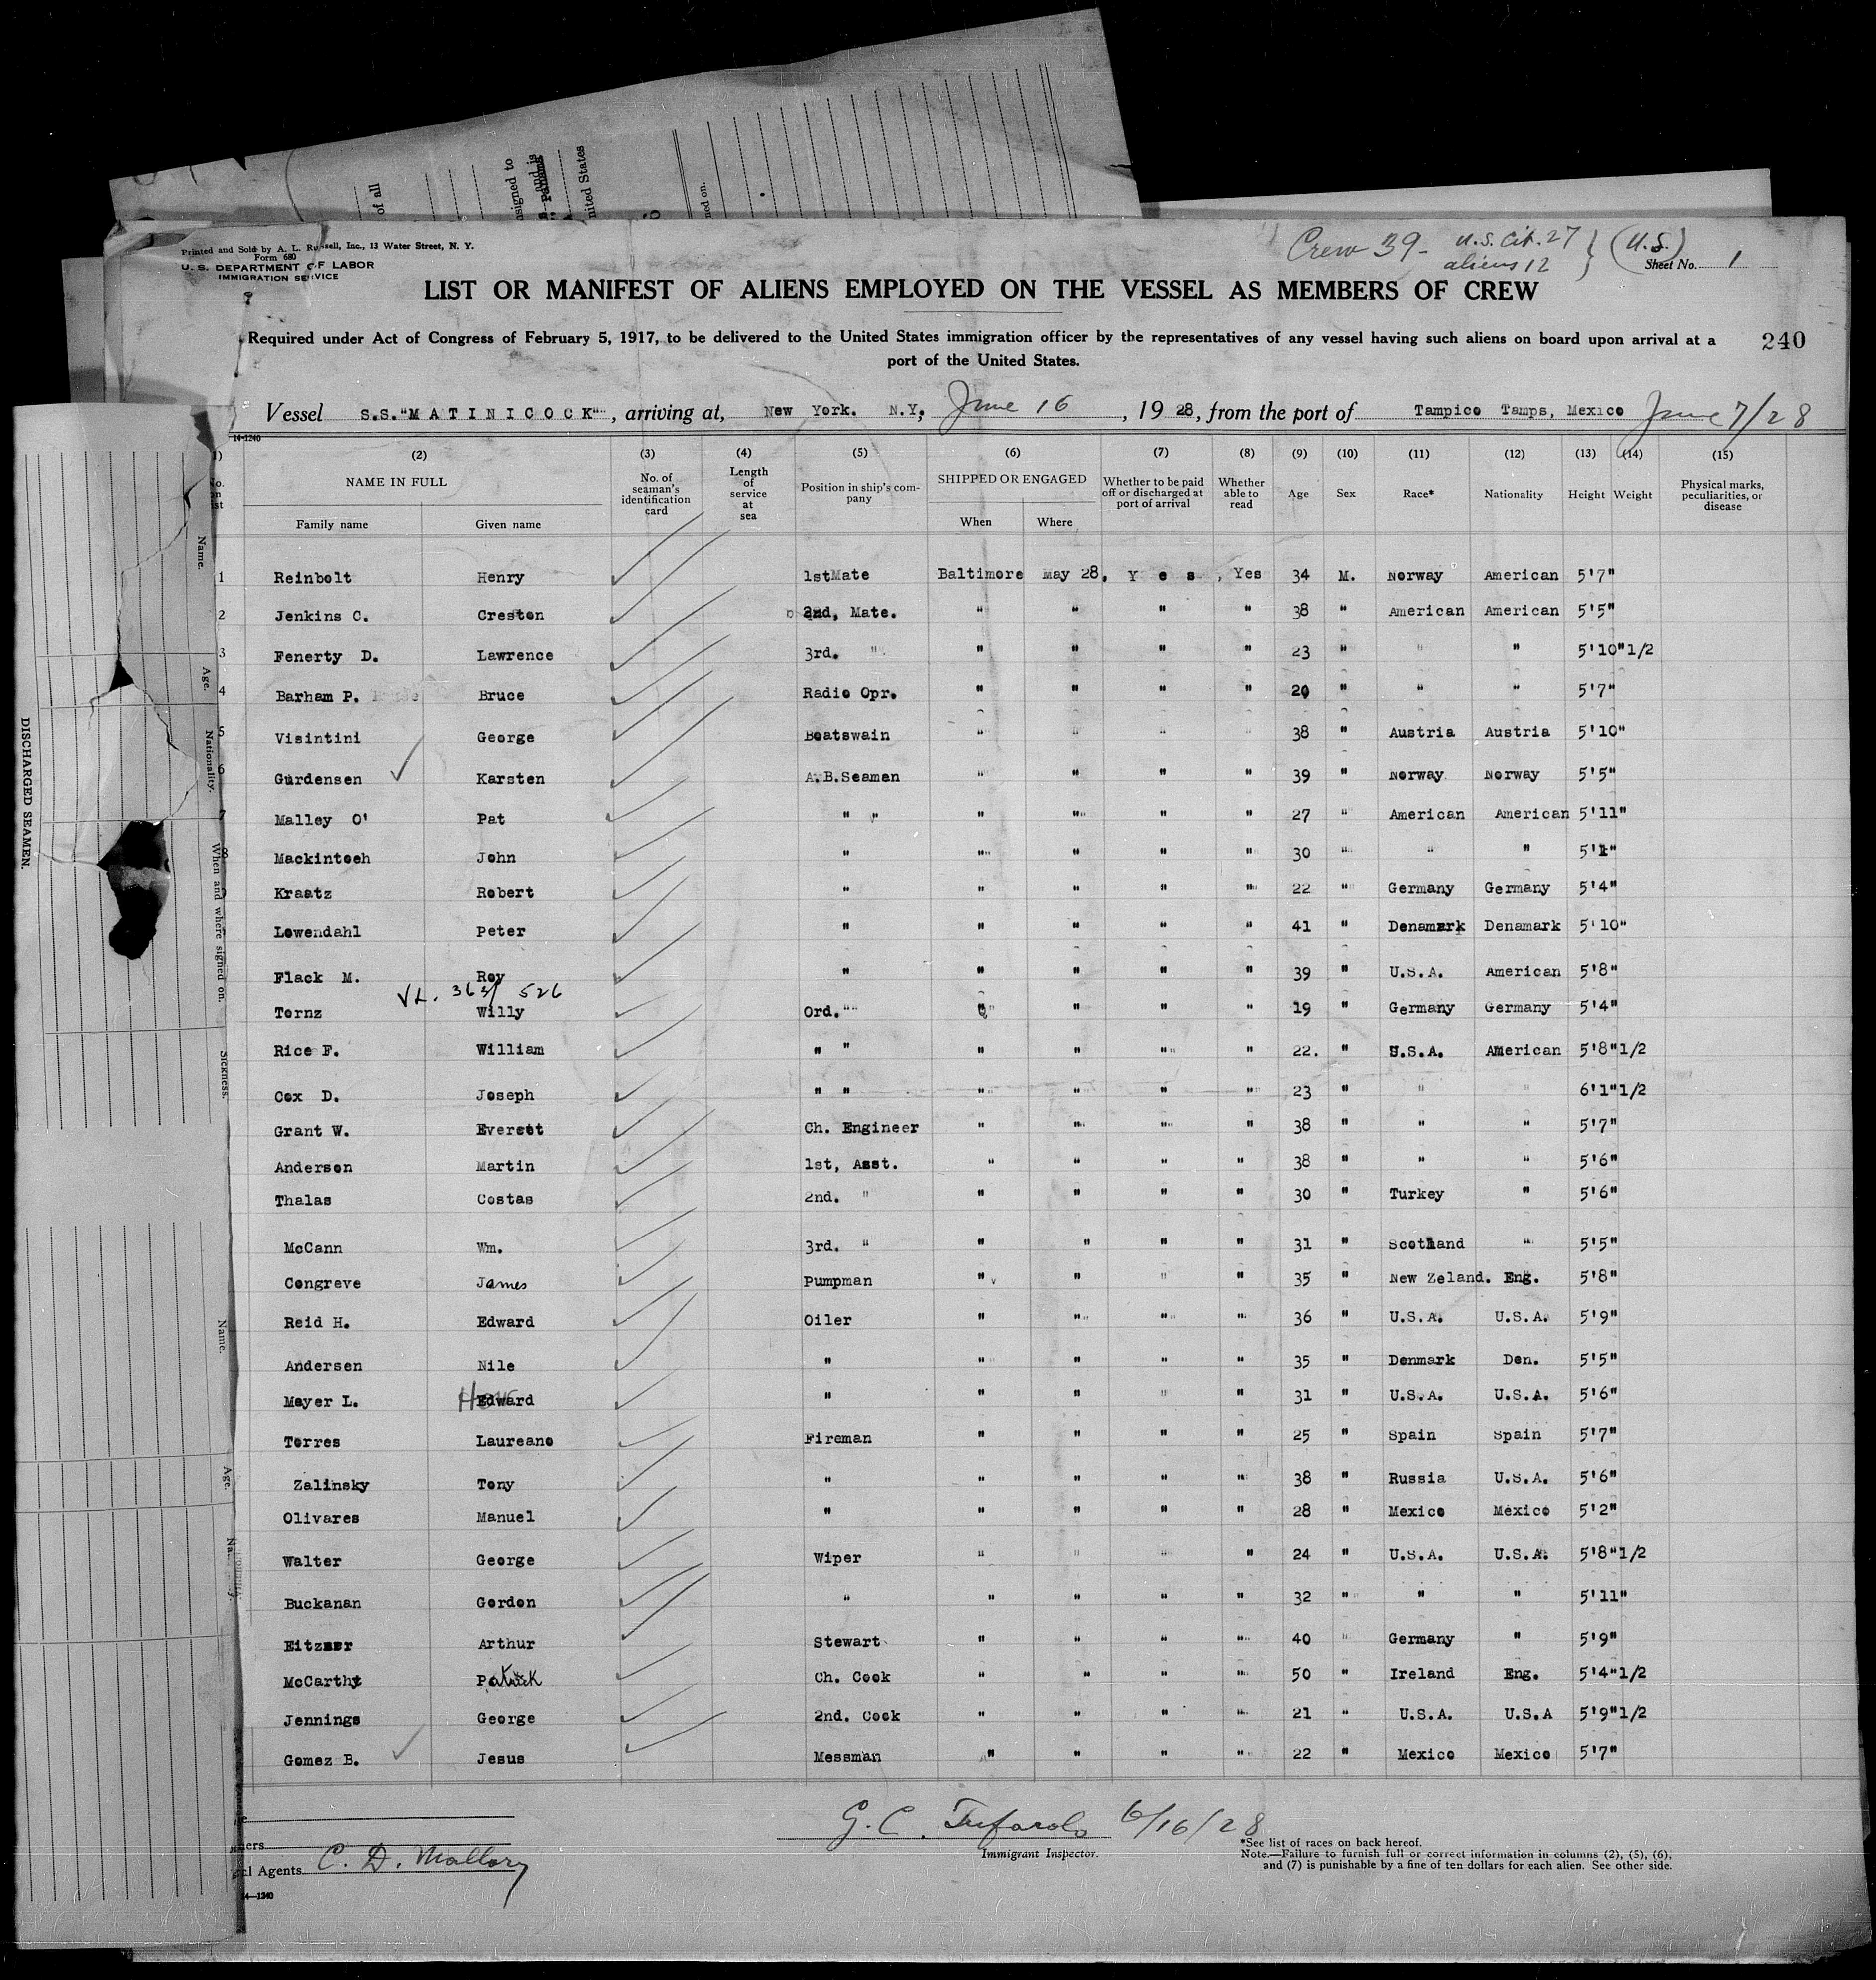 of all
signed to
and is
nited States
ned on.
Printed and Sold by A. L. Russell, Inc., 13 Water Street, N. Y.
Form 680
U. S. DEPARTMENT OF LABOR
IMMIGRATION SERVICE
Crew 39- U.S. Cit. 27 } (U.S.)
aliens 12
Sheet No. 1
LIST OR MANIFEST OF ALIENS EMPLOYED ON THE VESSEL AS MEMBERS OF CREW
Required under Act of Congress of February 5, 1917, to be delivered to the United States immigration officer by the representatives of any vessel having such aliens on board upon arrival at a
port of the United States.
240
Vessel S.S."MATINICOCK", arriving at, New York. N.Y, June 16, 19 28, from the port of Tampico Tamps, Mexico June 7/28
14-1240
(2) (3) (4) (5) (6) (7) (8) (9) (10) (11) (12) (13) (14) (15)
NAME IN FULL No. of seaman's identification card Length of service at sea Position in ship's company SHIPPED OR ENGAGED Whether to be paid off or discharged at port of arrival Whether able to read Age Sex Race* Nationality Height Weight Physical marks, peculiarities, or disease
Family name Given name When Where
1 Reinbolt Henry 1stMate Baltimore May 28, Yes, Yes 34 M. Norway American 5'7"
2 Jenkins C. Creston 2nd, Mate. " " " " 38 " American American 5'5"
3 Fenerty D. Lawrence 3rd. " " " " " 23 " " " 5'10"1/2
4 Barham P. Bruce Radio Opr. " " " " 20 " " " 5'7"
5 Visintini George Boatswain " " " " 38 " Austria Austria 5'10"
6 Gurdensen Karsten A.B.Seamen " " " " 39 " Norway Norway 5'5"
7 Malley O' Pat " " " " " " 27 " American American 5'11"
8 Mackintosh John " " " " " 30 " " " 5'1"
Kraatz Robert " " " " " 22 " Germany Germany 5'4"
Lowendahl Peter " " " " " 41 " Denamark Denamark 5'10"
Flack M. Roy " " " " " 39 " U.S.A. American 5'8"
VL. 363/ 526
Tornz Willy Ord."" " " " " 19 " Germany Germany 5'4"
Rice F. William " " " " " " 22. " U.S.A. American 5'8"1/2
Cox D. Joseph " " " " " " 23 " " " 6'1"1/2
Grant W. Everett Ch. Engineer " " " " 38 " " " 5'7"
Anderson Martin 1st, Asst. " " " " 38 " " " 5'6"
Thalas Costas 2nd. " " " " " 30 " Turkey " 5'6"
McCann Wm. 3rd. " " " " " 31 " Scotland " 5'5"
Congreve James Pumpman " " " " 35 " New Zeland. Eng. 5'8"
Reid H. Edward Oiler " " " " 36 " U.S.A. U.S.A. 5'9"
Andersen Nile " " " " " 35 " Denmark Den. 5'5"
Meyer L. Edward " " " " " 31 " U.S.A. U.S.A. 5'6"
Torres Laureano Fireman " " " " 25 " Spain Spain 5'7"
Zalinsky Tony " " " " " 38 " Russia U.S.A. 5'6"
Olivares Manuel " " " " " 28 " Mexico Mexico 5'2"
Walter George Wiper " " " " 24 " U.S.A. U.S.A. 5'8"1/2
Buckanan Gordon " " " " " 32 " " " 5'11"
Arthur Stewart " " " " 40 " Germany " 5'9"
McCarthy Patrick Ch. Cook " " " " 50 " Ireland Eng. 5'4"1/2
Jennings George 2nd. Cook " " " " 21 " U.S.A. U.S.A 5'9"1/2
Gomez B. Jesus Messman " " " " 22 " Mexico Mexico 5'7"
6/16/28
Immigrant Inspector.
C. D. Mallory
Agents
14—1240
*See list of races on back hereof.
Note.—Failure to furnish full or correct information in columns (2), (5), (6),
and (7) is punishable by a fine of ten dollars for each alien. See other side.
DISCHARGED SEAMEN.
Name.
Age.
Nationality.
When and where signed on.
Sickness.
Name.
Age.